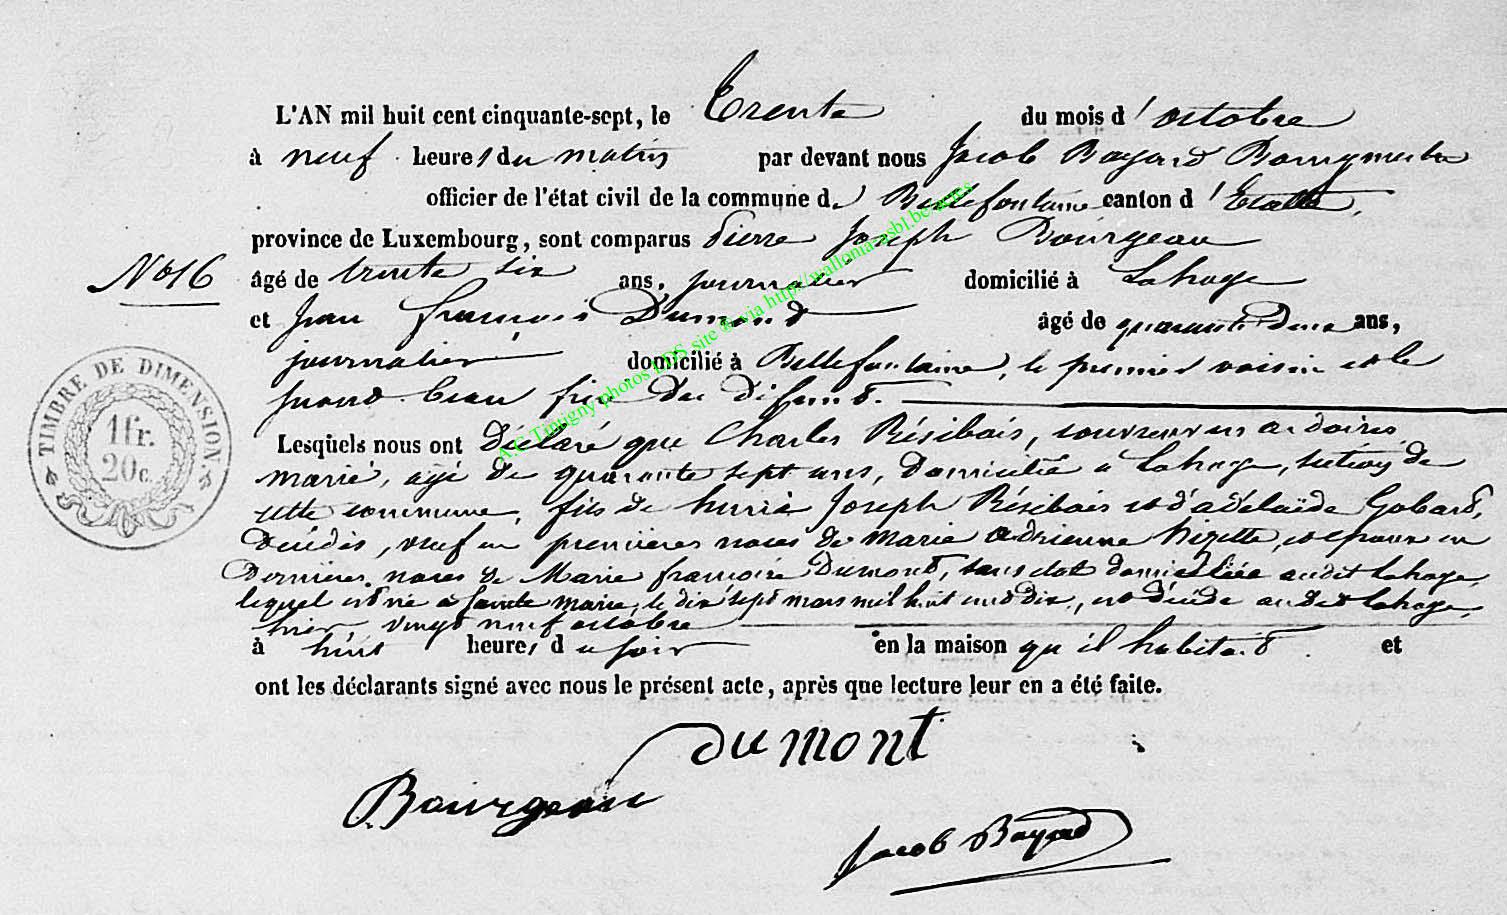 L'AN mil huit cent cinquante-sept, le Trente du mois d'octobre
à neuf heures du matin par devant nous Jacob Bayard Bourgmestre
officier de l'état civil de la commune de Bellefontaine canton d'Etalle,
province de Luxembourg, sont comparus Pierre Joseph Bourgeau
N° 16
âgé de trente six ans, journalier domicilié à Lahage
et Jean François Dumont âgé de quarante deux ans,
journalier domicilié à Bellefontaine, le premier voisin et le
second beau frère du défunt.
Lesquels nous ont Déclaré que Charles Résibois, couvreur en ardoises
marié, agé de quarante sept ans, Domicilié à Lahage, section de
cette commune, fils de henri Joseph Résibois et d'adélaïde Gobard,
Décédés, veuf en premières noces de Marie Adrienne hizette, et époux en
Dernières noces de Marie françoise Dumont, sans état domiciliée audit Lahage,
lequel est né à Sainte Marie, le dix sept mars mil huit cent dix, est décédé audit Lahage,
hier, vingt neuf octobre
à huit heures du soir en la maison qu'il habitait et
ont les déclarants signé avec nous le présent acte, après que lecture leur en a été faite.
dumont
Bourgeau
Jacob Bayard
TIMBRE DE DIMENSION.
1 fr.
20 c.
A.G Tintigny photos LDS site & via http://wallonia-asbl.be/actes